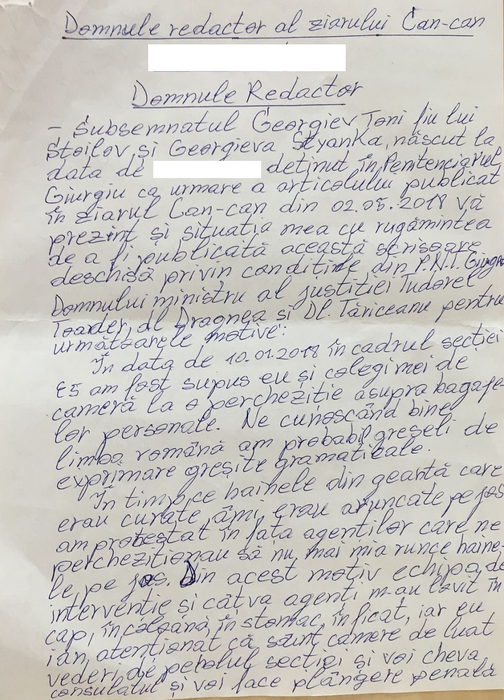 Domnule redactor al ziarului Can-can
Domnule Redactor
- Subsemnatul Georgiev Toni fiu lui
Stoilov și Georgieva Styanka, născut la
data de deținut în Penitenciarul
Giurgiu ca urmare a articolului publicat
în ziarul Can-can din 02.05.2018 vă
prezint și situația mea cu rugămintea
de a fi publicată această scrisoare
deschisă privin condițiile din P.N.T. Giurgiu
Domnului ministru al justiției Tudorel
Toader, dl Dragnea și Dl. Tăriceanu pentru
următoarele motive:
În data de 10.01.2018 în cadrul secției
E5 am fost supus eu și colegi mei de
cameră la o perchezitie asupra bagaje
lor personale. Ne cunoscând bine
limba română am probabil greșeli de
exprimare greșite gramaticale.
În timp ce hainele din geantă care
erau curate îmi erau aruncate pe jos
am protestat în fața agenților care ne
percheziționau să nu mai mia runce haine-
le pe jos. Din acest motiv echipa de
intervenție și câtva agenți m-au lovit în
cap, în coloană, în stomac, în ficat, iar eu
iam atenționat că sunt camere de luat
vederi, de pe holul secției și voi chema
consulatul și voi face plângere penală